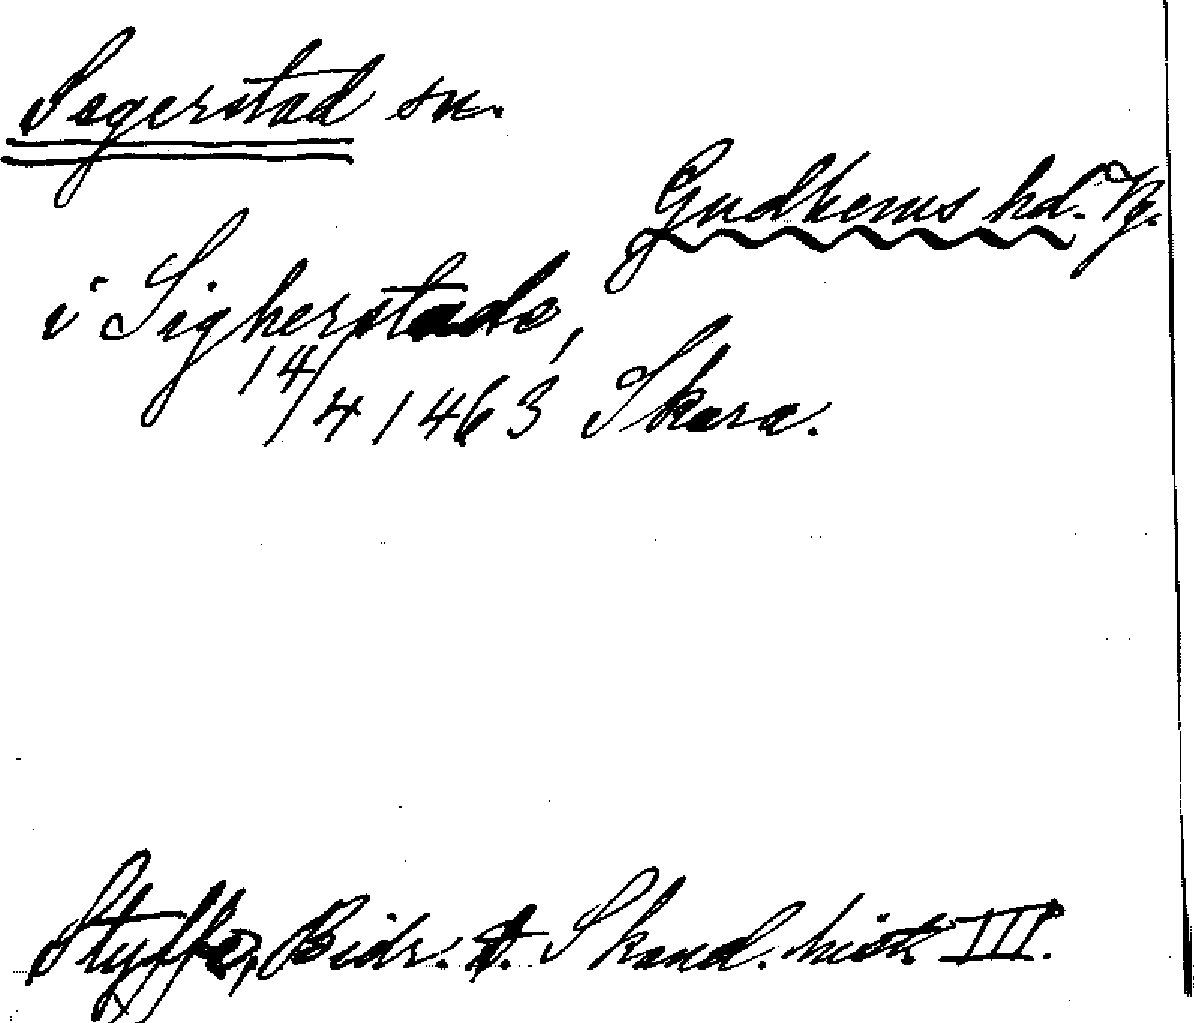 Segerstad sn.
Gudhems hd. Vg.
i Sigherstade,
14/4 1463 Skara.
Styffe, Bidr. t. Skand. hist. III.